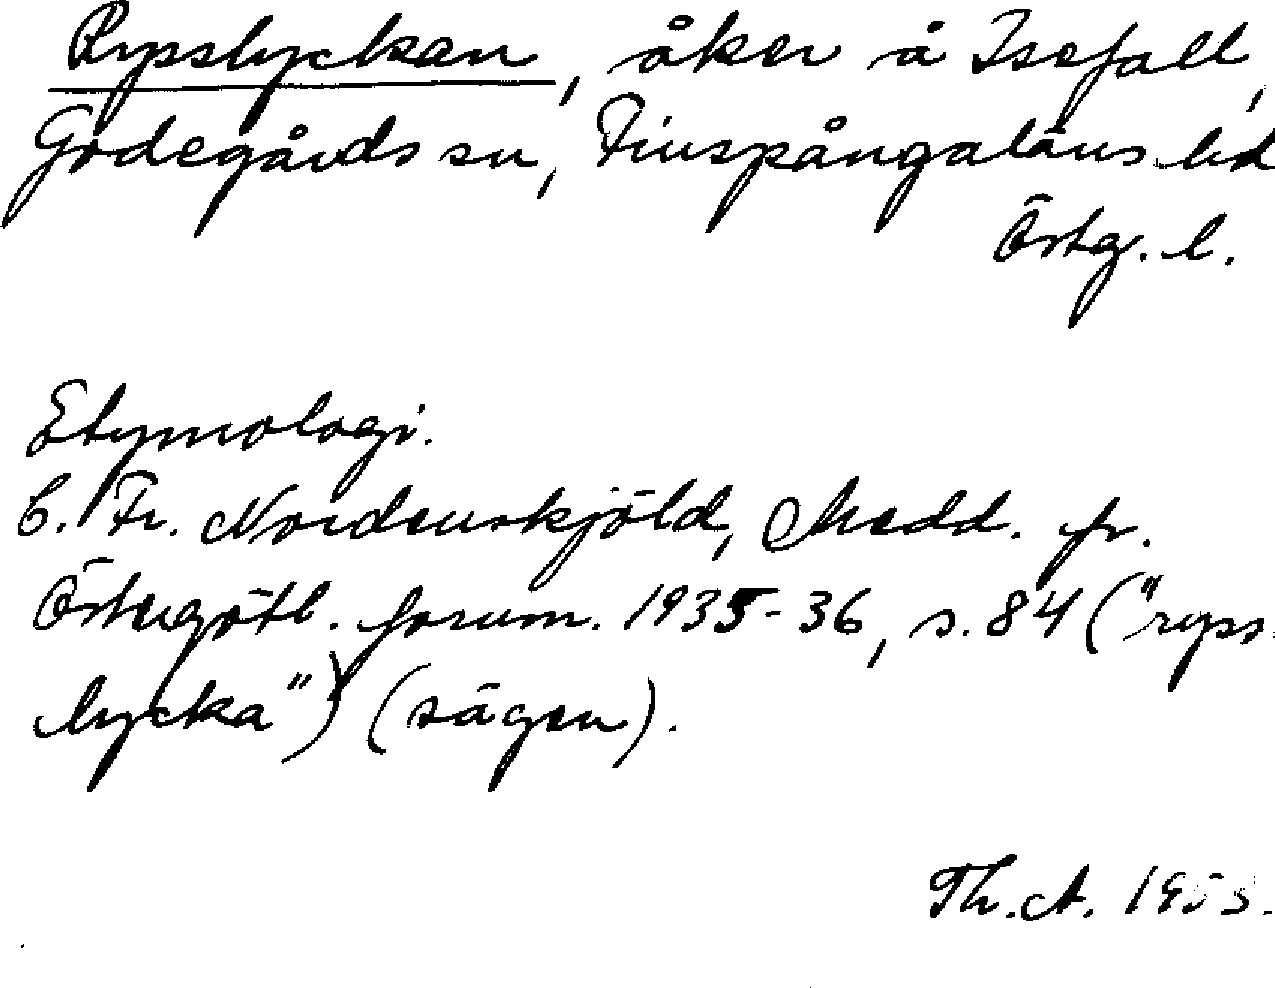 Rysslyckan, åker å Isefall,
Godegårds sn, Finspångaläns hd
Östg. l.
Etymologi.
C. Fr. Nordenskjöld, Medd. fr.
Östergötl. fornm. 1935-36, s. 84 ("ryss-
lycka") (sägen).
Th. A. 1953.